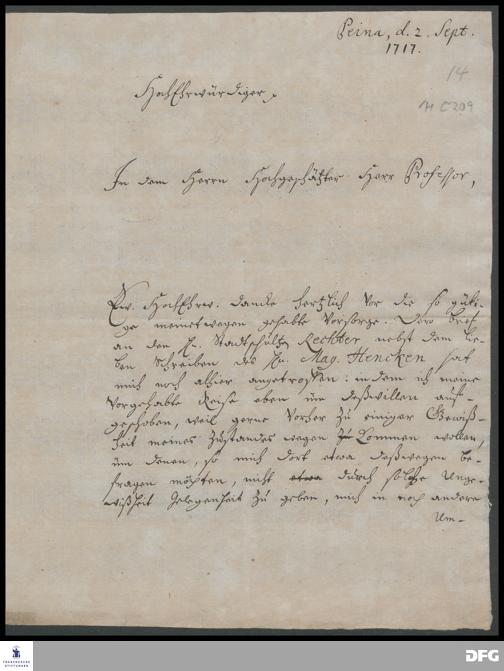 Peina, d. 2. Sept.
1717.
14
H C209
HochEhrwürdiger,
In dem Herrn Hochgeschätzter Herr Professor,
Ew. HochEhrw. dancke hertzlich vor die so güti-
ge meinetwegen gehabte Vorsorge. Dero Brief
an den H. Stadtschultz Rechter nebst dem lie-
ben Schreiben des Hn. Mag. Hencken hat
mich noch alhier angetroffen: indem ich meine
vorgehabte Reise eben um deßwillen auf-
geschoben, weil gerne vorher zu einiger Gewiß-
heit meines Zustandes wegen kommen wollen,
um denen, so mich dort etwa deßwegen be-
fragen möchten, nicht etwa durch solche Unge-
wißheit Gelegenheit zu geben, mich in noch andere
Um-
FRANCKESCHE
STIFTUNGEN
DFG